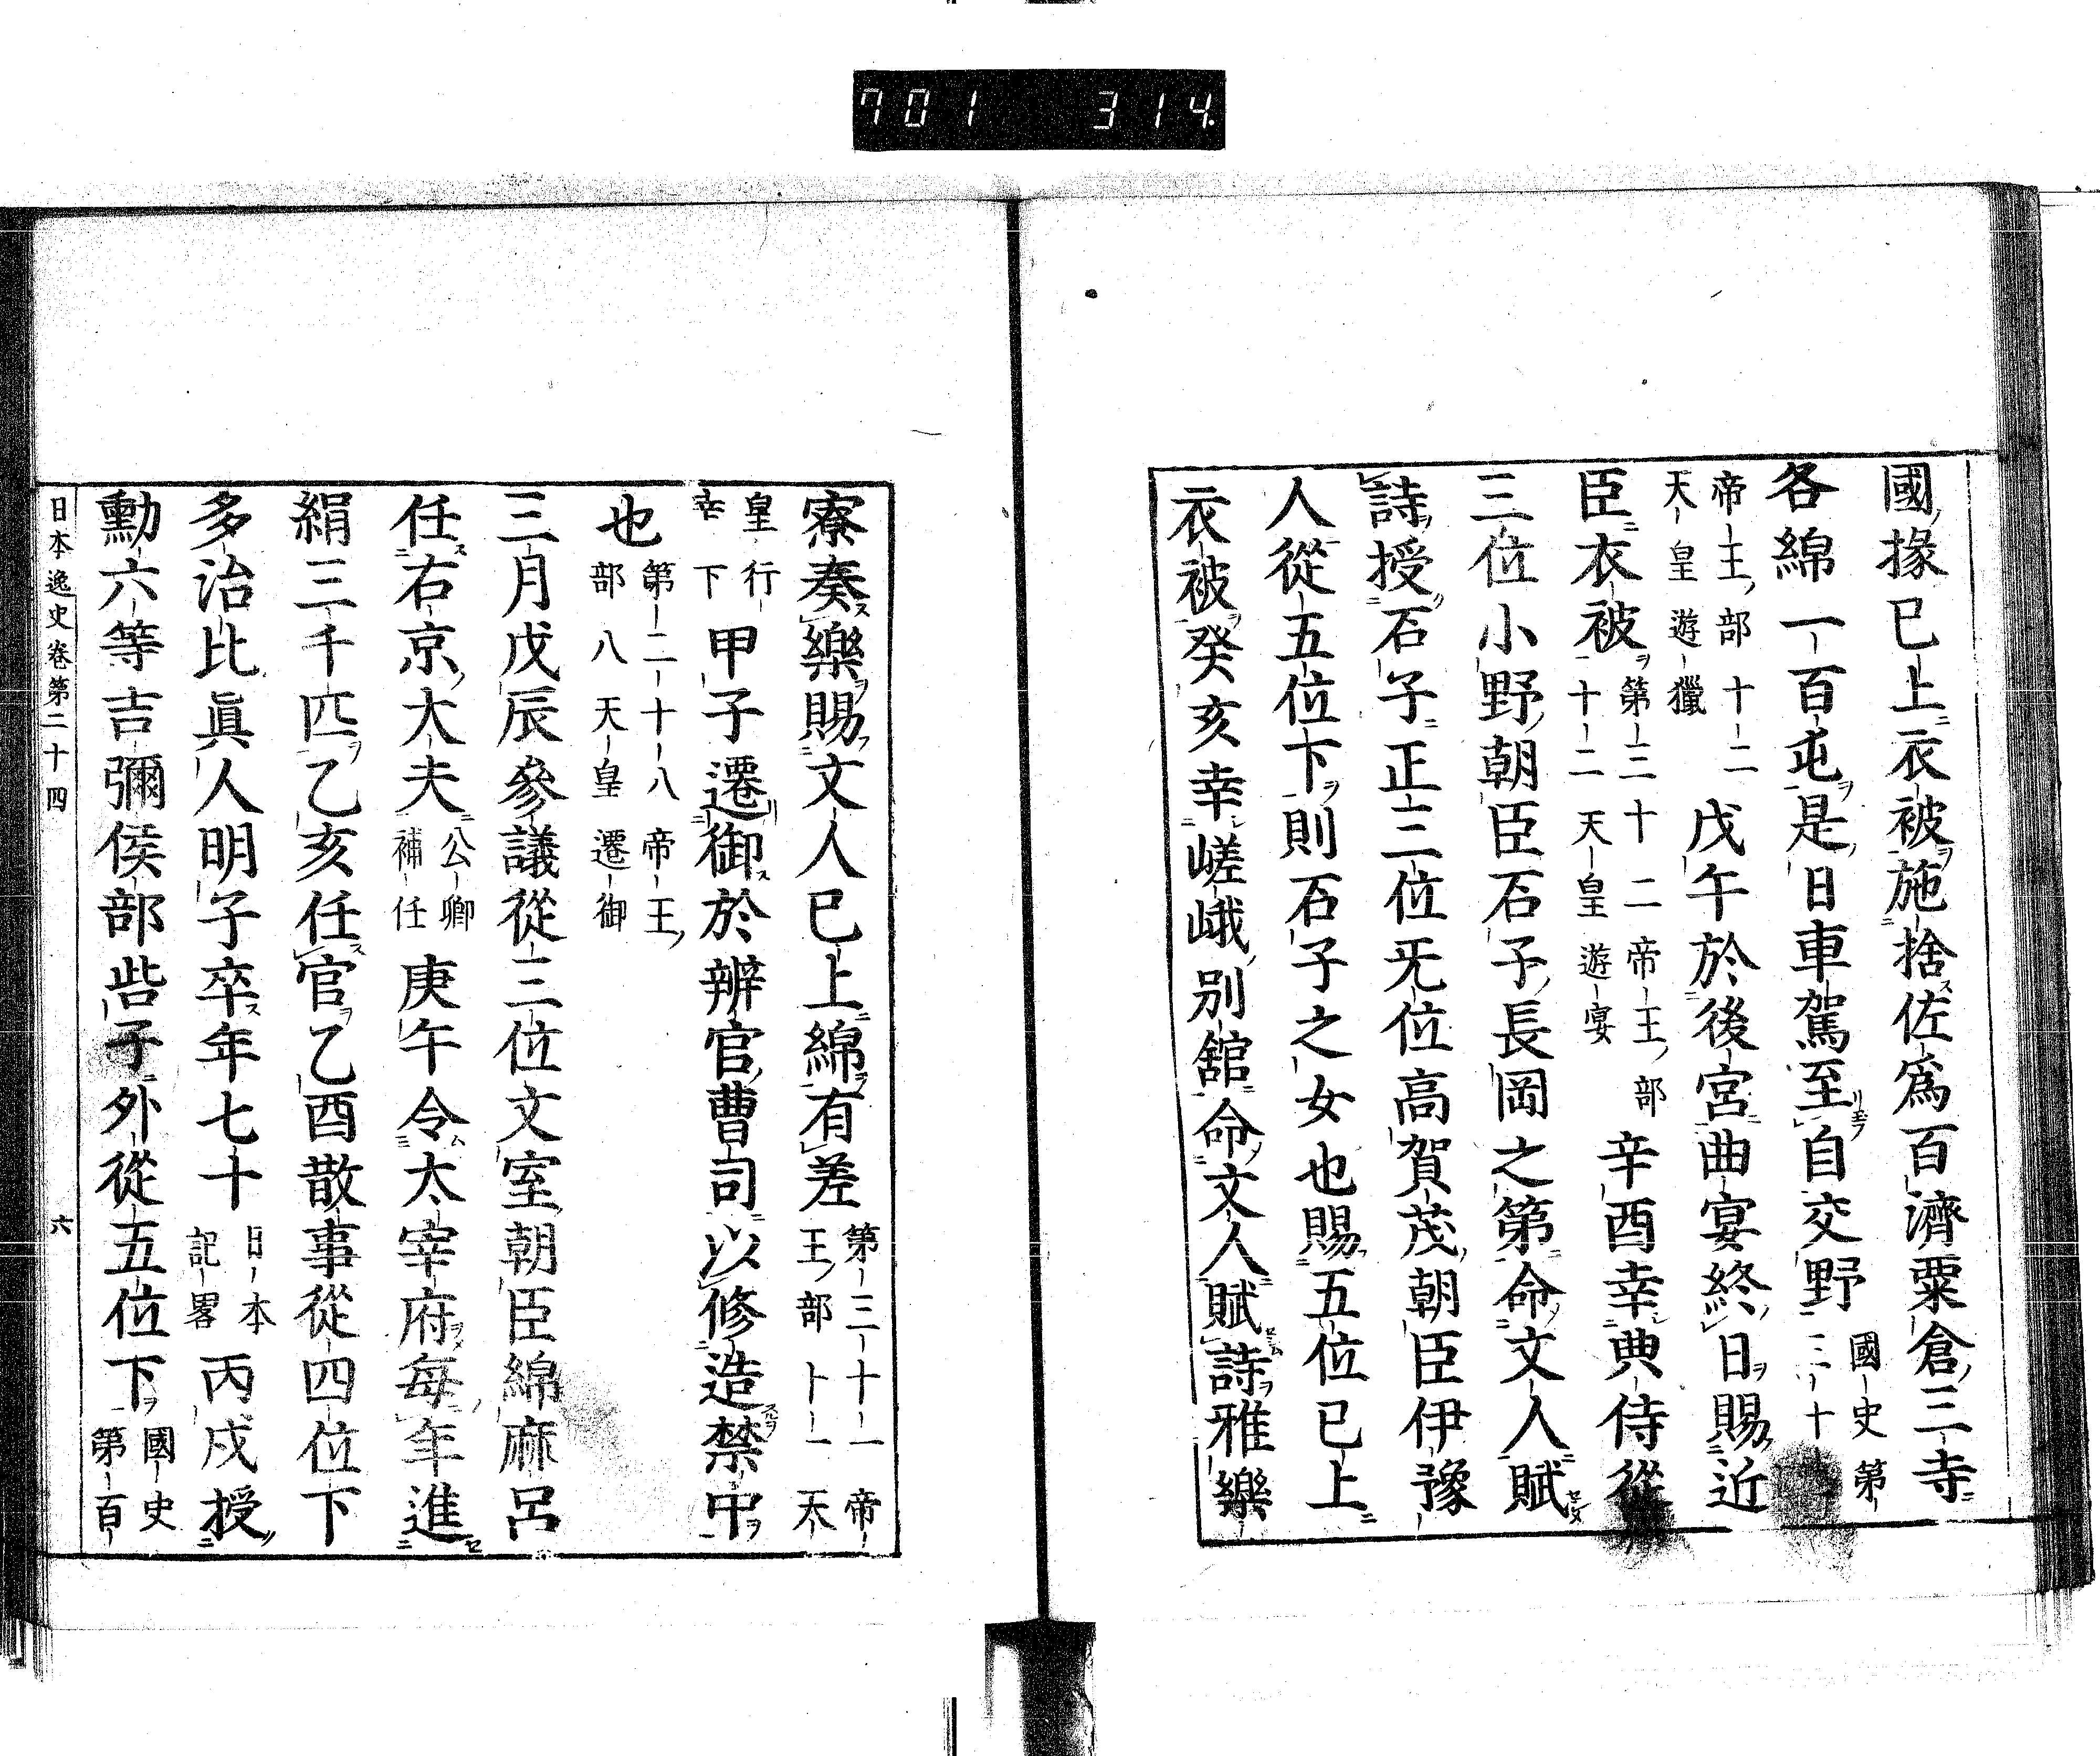 701 314
國掾已上衣被施捨佐爲百濟粟倉三寺
各綿一百屯是日車駕至自交野國史第三十
帝王部十二天皇遊獵戊午於後宮曲宴終日賜近
臣衣被第三十二帝王部十二天皇遊宴辛酉幸典侍從
三位小野朝臣石子長岡之第命文人賦
詩授石子正三位无位高賀茂朝臣伊豫
人從五位下則石子之女也賜五位已上
衣被癸亥幸嵯峨別舘命文人賦詩雅樂
寮奏樂賜文人已上綿有差第三十一帝王部十一天
皇行幸下甲子遷御於辨官曹司以修造禁中
也第二十八帝王部八天皇遷御
三月戊辰參議從三位文室朝臣綿麻呂
任右京大夫公卿補任庚午令太宰府每年進
絹三千匹乙亥任官乙酉散事從四位下
多治比眞人明子卒年七十日本記畧丙戌授
勳六等吉彌侯部呰子外從五位下國史第百
日本逸史卷第二十四 六